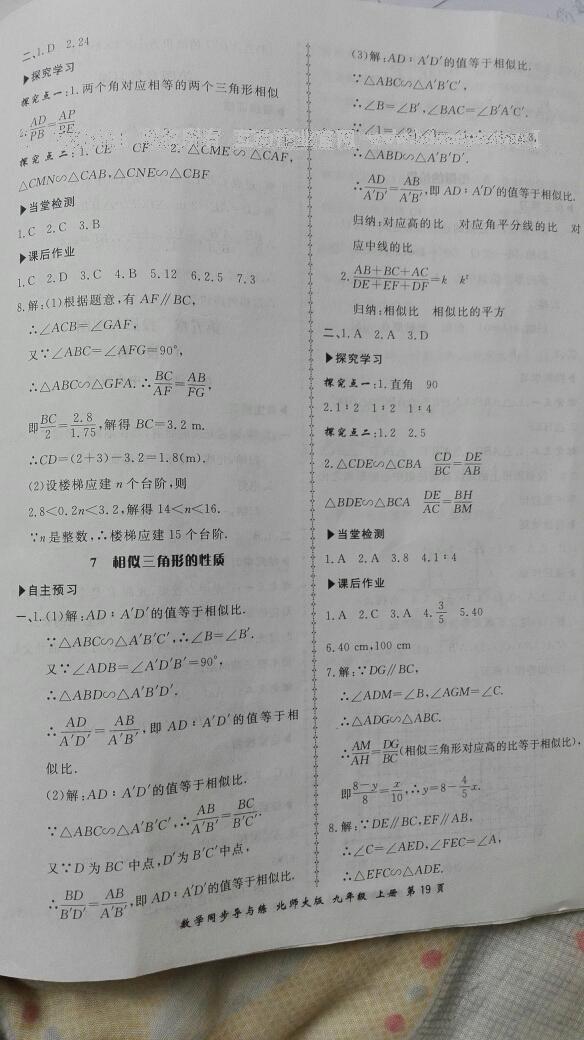 二、1.D 2.24
▶探究学习
探究点一:1.两个角对应相等的两个三角形相似
AD/PB=AP/PE
探究点二:1. CE CF 2.△CME∽△CAF,
△CMN∽△CAB,△CNE∽△CBF
▶当堂检测
1.C 2.C 3.B
▶课后作业
1.C 2.D 3.C 4.B 5.12 6.2.5 7.3
8.解:(1)根据题意,有 AF∥BC,
∴∠ACB=∠GAF,
又∵∠ABC=∠AFG=90°,
∴△ABC∽△GFA.∴BC/AF=AB/FG,
即BC/2=2.8/1.75,解得 BC=3.2 m.
∴CD=(2+3)-3.2=1.8(m).
(2)设楼梯应建 n 个台阶,则
2.8<0.2n<3.2,解得 14<n<16.
∵n是整数,∴楼梯应建 15 个台阶.
7 相似三角形的性质
▶自主预习
一、1.(1)解:AD∶A′D′的值等于相似比.
∵△ABC∽△A′B′C′,∴∠B=∠B′.
又∵∠ADB=∠A′D′B′=90°,
∴△ABD∽△A′B′D′.
∴AD/A′D′=AB/A′B′,即 AD∶A′D′的值等于相
似比.
(2)解:AD∶A′D′的值等于相似比.
∵△ABC∽△A′B′C′,∴AB/A′B′=BC/B′C′.
又∵D为 BC 中点,D′为 B′C′中点,
∴BD/B′D′=AB/A′B′,即 AD∶A′D′的值等于相似比.
(3)解:AD∶A′D′的值等于相似比.
∵△ABC∽△A′B′C′,
∴∠B=∠B′,∠BAC=∠B′A′C′.
∴△ABD∽△A′B′D′.
∴AD/A′D′=AB/A′B′,即 AD∶A′D′的值等于相似比.
归纳:对应高的比 对应角平分线的比 对
应中线的比
2.AB+BC+AC/DE+EF+DF=k k²
归纳:相似比 相似比的平方
二、1.A 2.A 3.D
▶探究学习
探究点一:1.直角 90
2.1∶2 1∶2 1∶4
探究点二:1.2 2.5
2.△CDE∽△CBA CD/BC=DE/AB
△BDE∽△BCA DE/AC=BH/BM
▶当堂检测
1.A 2.A 3.8 4.1∶4
▶课后作业
1.A 2.C 3.A 4.3/5 5.40
6.40 cm,100 cm
7.解:∵DG∥BC,
∴∠ADM=∠B,∠AGM=∠C.
∴△ADG∽△ABC.
∴AM/AH=DG/BC(相似三角形对应高的比等于相似比),
即8-y/8=x/10,∴y=8-4/5x.
8.解:∵DE∥BC,EF∥AB,
∴∠C=∠AED,∠FEC=∠A,
∴△EFC∽△ADE.
数学同步导与练 北师大版 九年级 上册 第19页